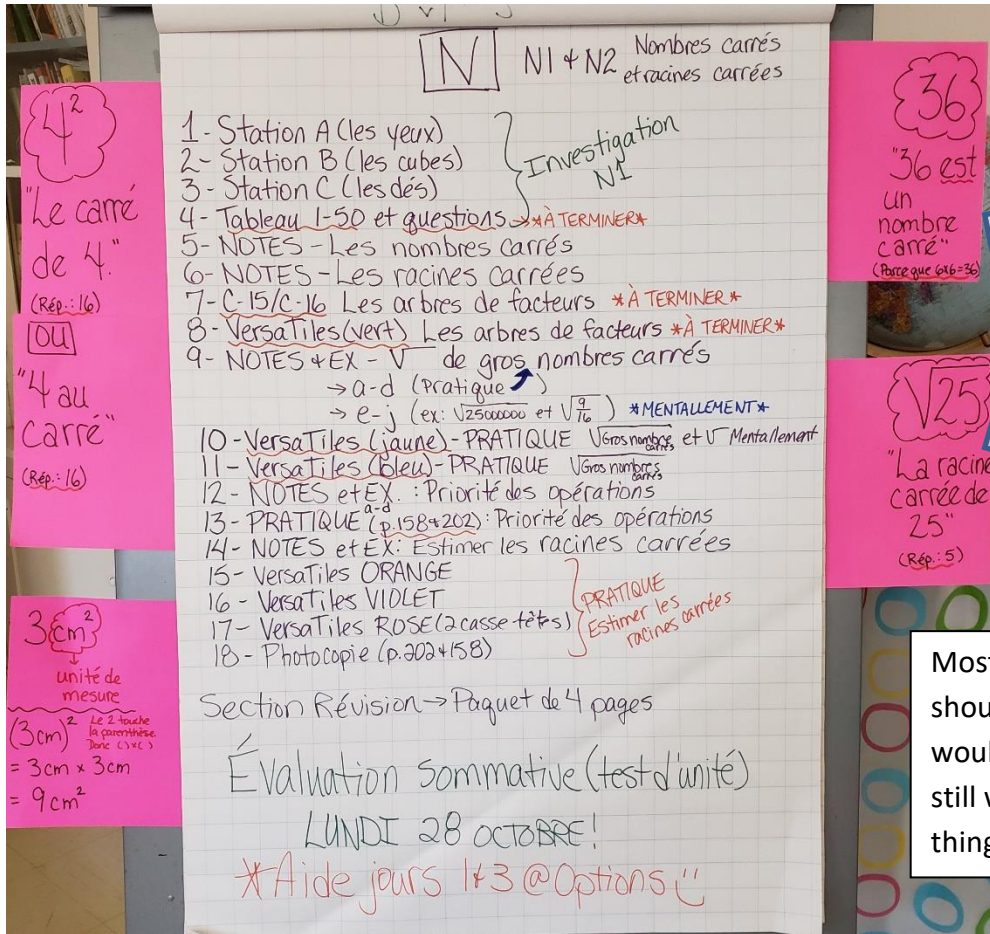 N
N1 + N2 Nombres carrés
et racines carrées
1- Station A (les yeux)
2- Station B (les cubes)
3- Station C (les dés)
4- Tableau 1-50 et questions → *À TERMINER*
Investigation
N1
5- NOTES - Les nombres carrés
6- NOTES - Les racines carrées
7- C-15/C-16 Les arbres de facteurs *À TERMINER*
8- VersaTiles (vert) Les arbres de facteurs *À TERMINER*
9- NOTES + EX - √ de gros nombres carrés
→ a-d (Pratique ↗)
→ e-j (ex: √25000000 et √9/16) *MENTALLEMENT*
10- VersaTiles (jaune) - PRATIQUE √Gros nombres carrés et √ Mentallement
11- VersaTiles (bleu) - PRATIQUE √Gros nombres carrés
12- NOTES et EX. : Priorité des opérations
13- PRATIQUE a-d (p.158+202) : Priorité des opérations
14- NOTES et EX: Estimer les racines carrées
15- VersaTiles ORANGE
16- VersaTiles VIOLET
17- VersaTiles ROSE (2 casse-têtes)
18- Photocopie (p.202+158)
PRATIQUE
Estimer les
racines carrées
Section Révision → Paquet de 4 pages
Évaluation sommative (test d'unité)
LUNDI 28 OCTOBRE!
*Aide jours 1+3 @ Options
4²
"Le carré
de 4."
(Rép.: 16)
OU
"4 au
carré"
(Rép.: 16)
3cm²
unité de
mesure
(3cm)² Le 2 touche
la parenthèse.
Donc ( ) x ( )
= 3cm x 3cm
= 9cm²
36
"36 est
un
nombre
carré"
(Parce que 6x6=36)
√25
"La racine
carrée de
25"
(Rép.: 5)
Most
shou
woul
still
thing